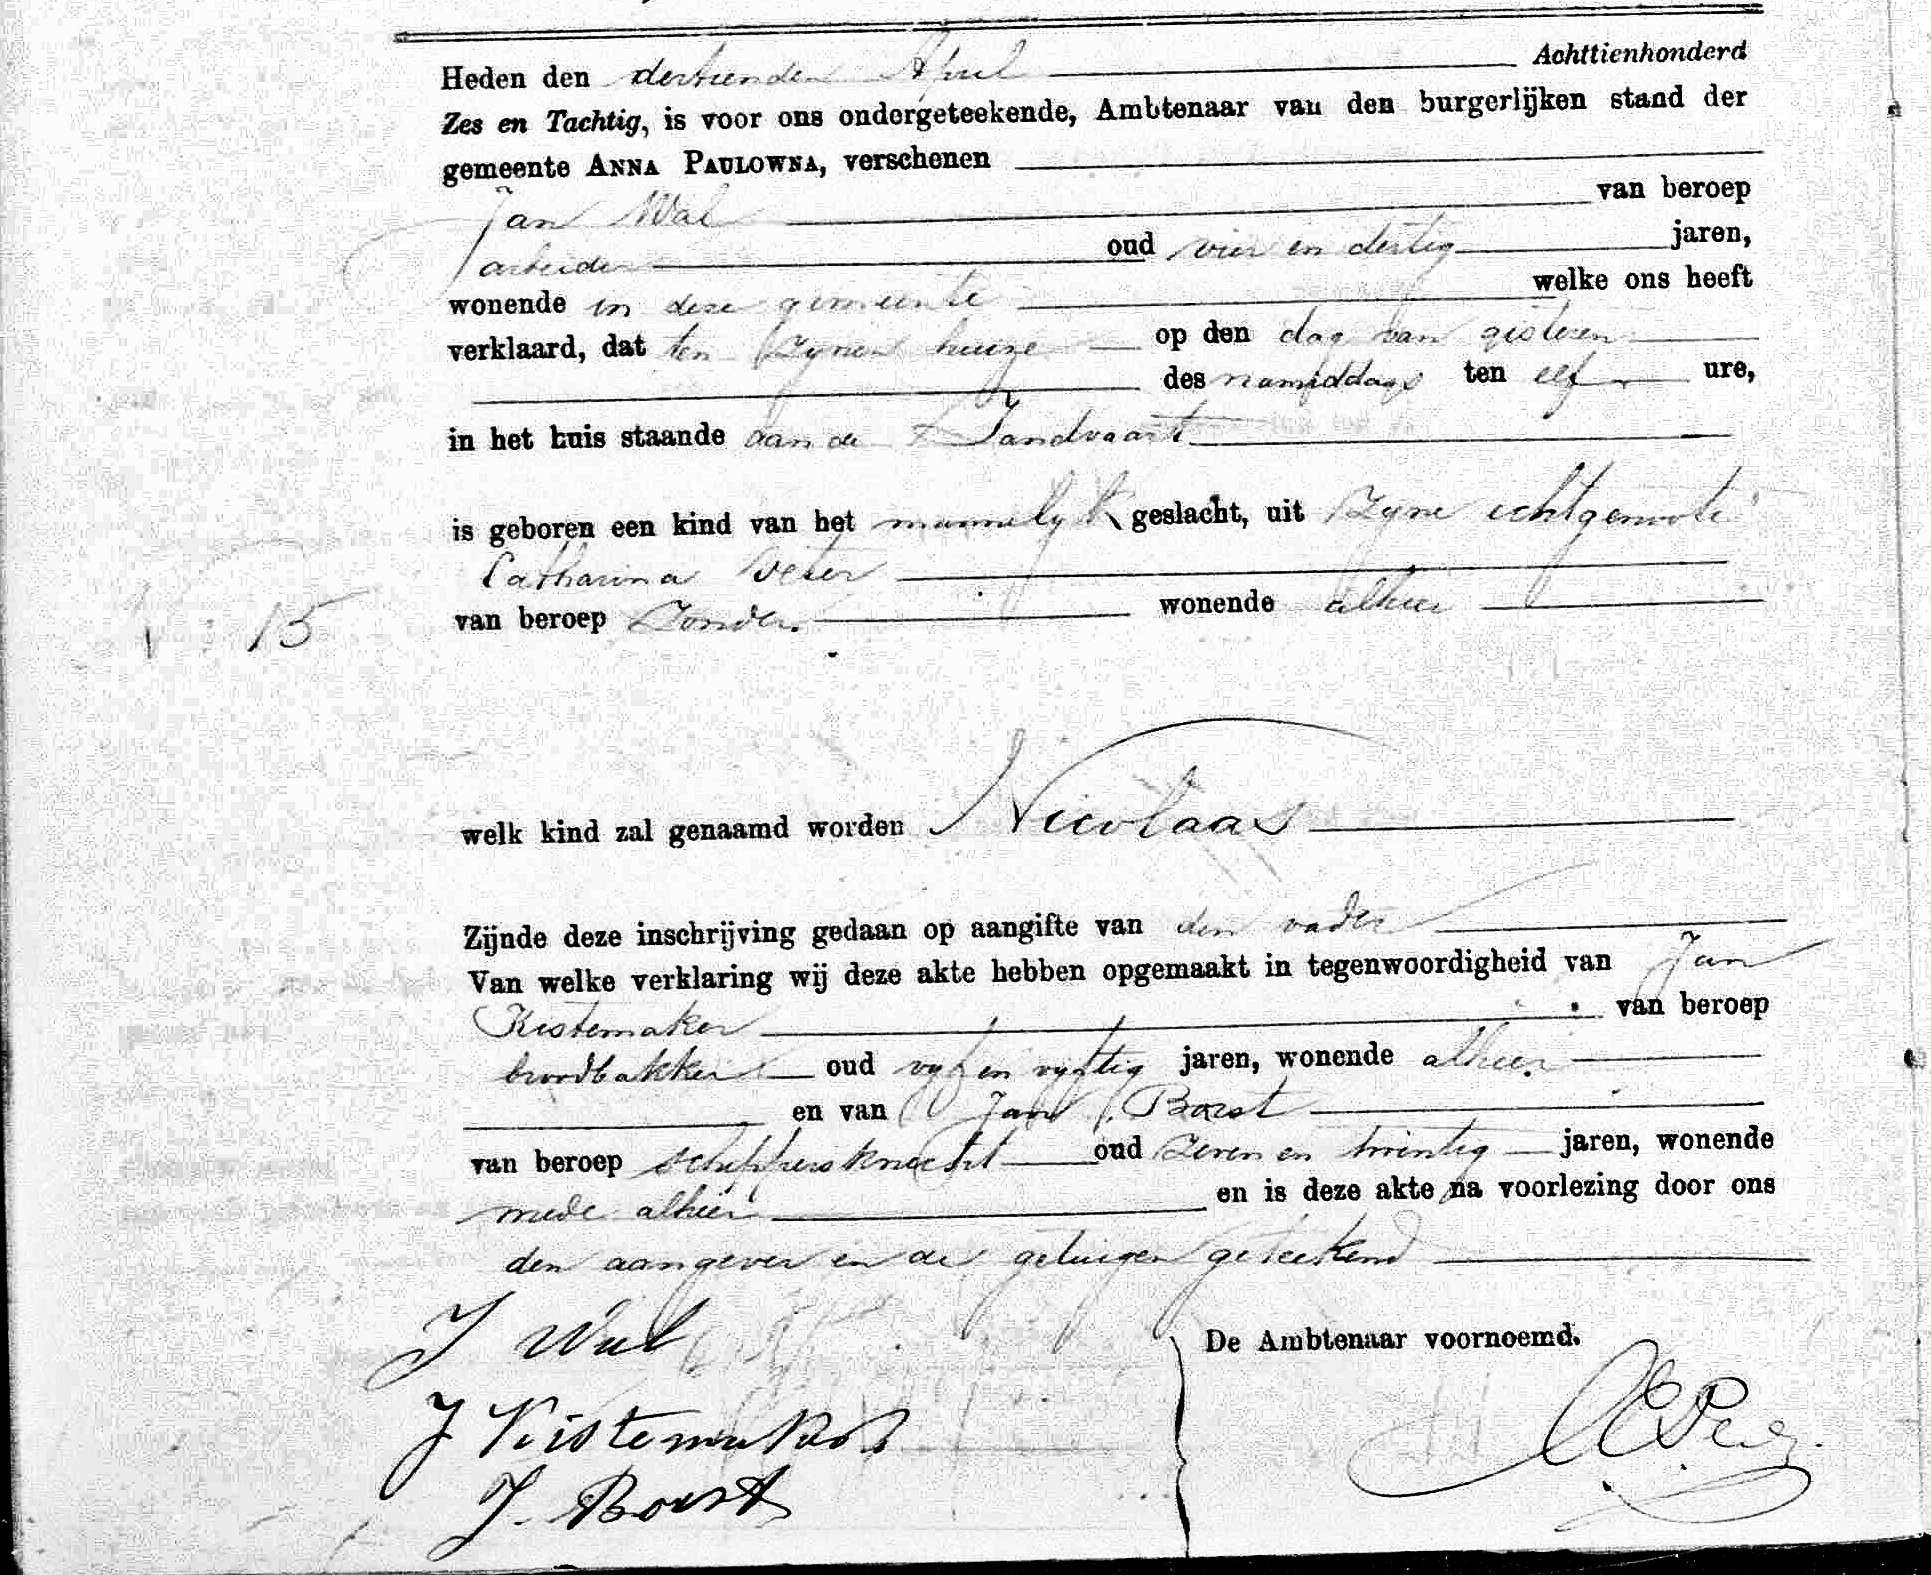 Heden den dertienden April Achttienhonderd
Zes en Tachtig, is voor ons ondergeteekende, Ambtenaar van den burgerlijken stand der
gemeente ANNA PAULOWNA, verschenen
Jan Wal van beroep
arbeider oud vier en dertig jaren,
wonende in deze gemeente welke ons heeft
verklaard, dat ten zynen huize op den dag van gisteren
des namiddags ten elf ure,
in het huis staande aan de Zandvaart
is geboren een kind van het mannelyk geslacht, uit zyne echtgenoote
Catharina
van beroep Zonder. wonende alhier
N: 15
welk kind zal genaamd worden Nicolaas
Zijnde deze inschrijving gedaan op aangifte van den vader
Van welke verklaring wij deze akte hebben opgemaakt in tegenwoordigheid van Jan
Kistemaker van beroep
broodbakker oud vyf en vyftig jaren, wonende alhier
en van Jan Borst
van beroep schippersknecht oud zeven en twintig jaren, wonende
mede alhier en is deze akte na voorlezing door ons
den aangever en de getuigen geteekend
J Wal
De Ambtenaar voornoemd.
J Kistemaker
J. Borst